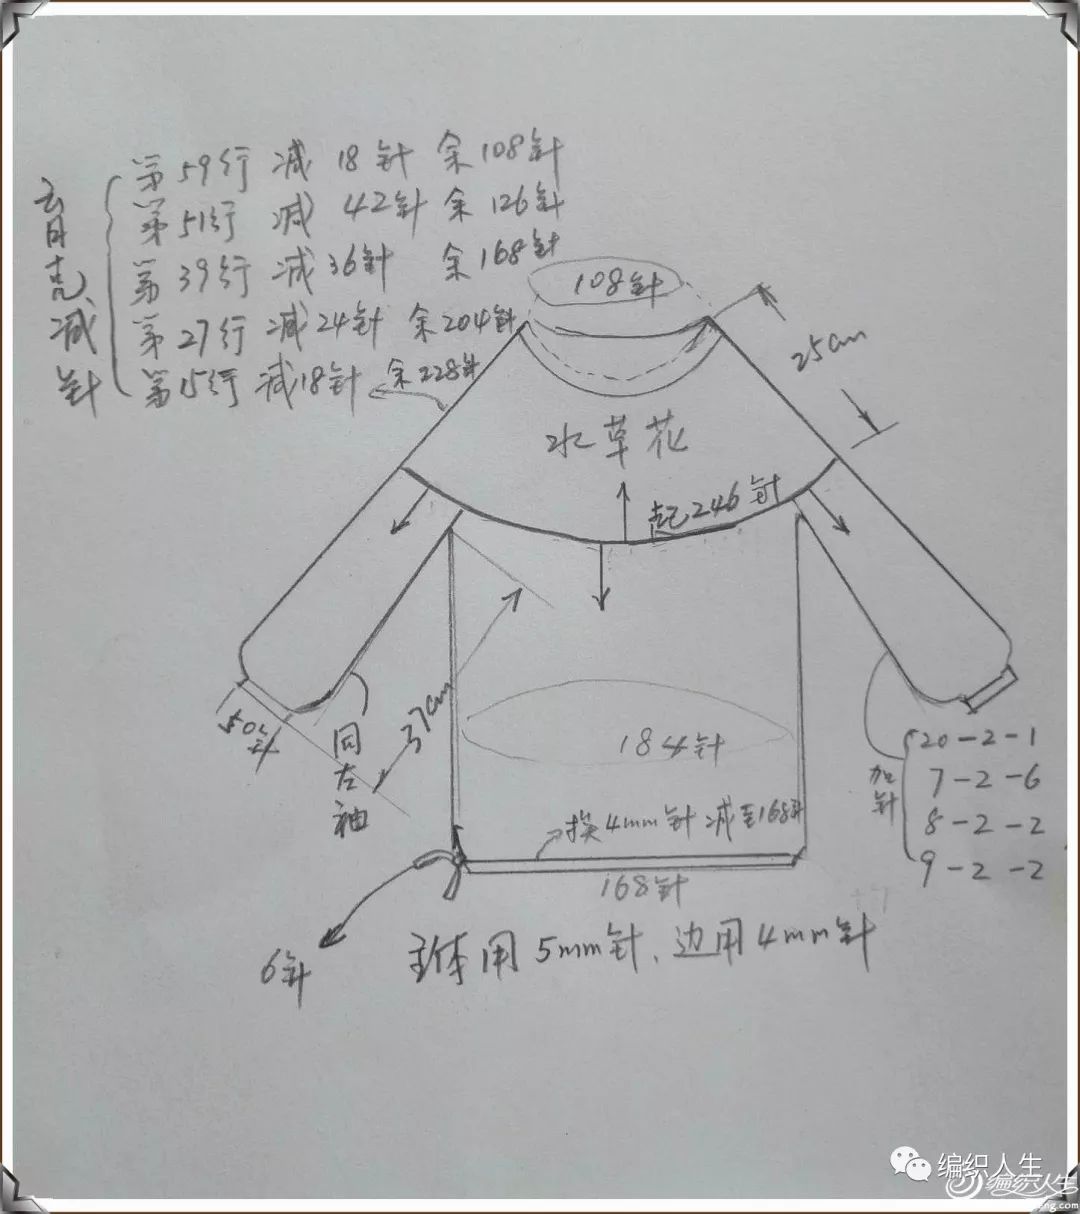 第59行 减18针 余108针
第51行 减 42针 余126针
第39行 减36针 余168针
第27行 减24针 余204针
第15行 减18针 余228针
育克减针
108针
25cm
水草花
起246针
50针
同左袖
37cm
184针
加针
20-2-1
7-2-6
8-2-2
9-2-2
换4mm针减至168针
168针
6针
主体用5mm针,边用4mm针
编织人生
编织人生